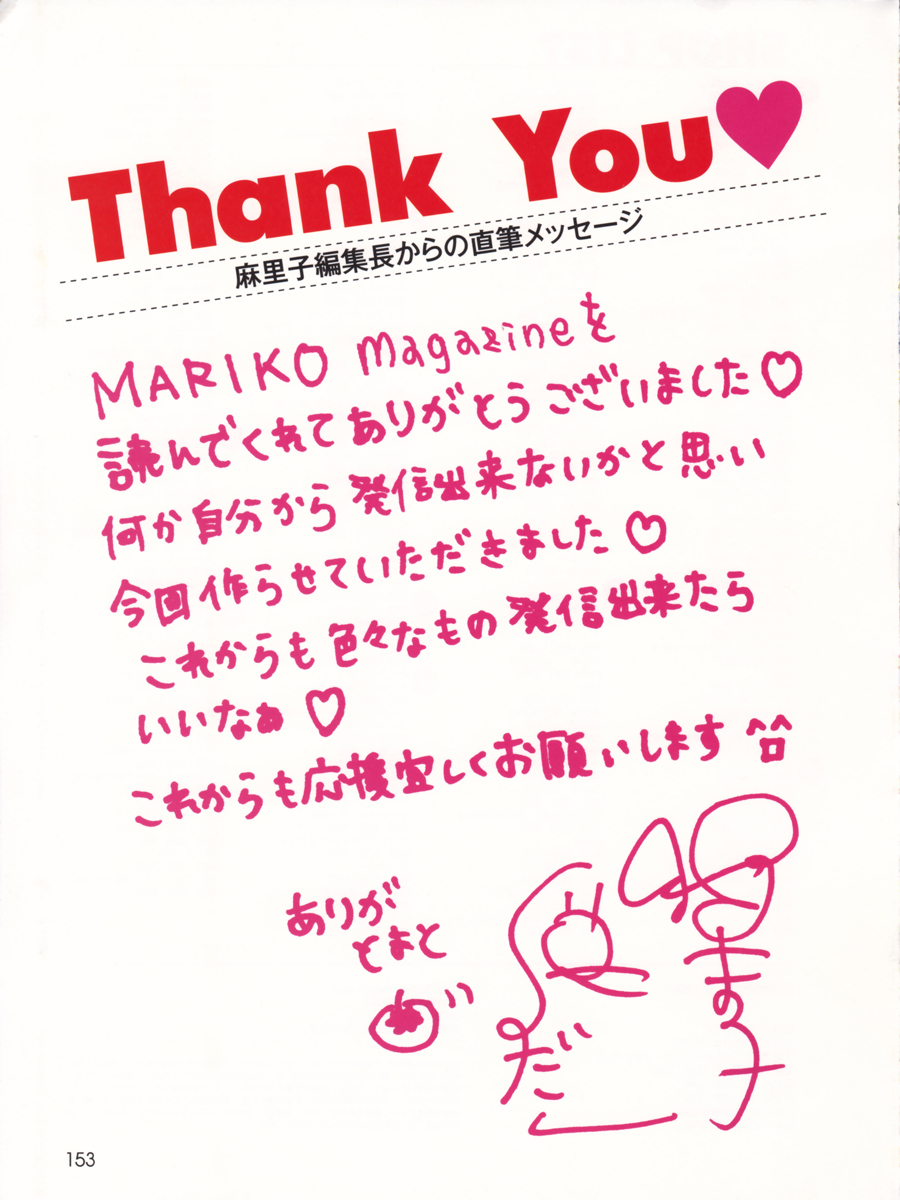 Thank You♥
麻里子編集長からの直筆メッセージ
MARIKO magazineを
読んでくれてありがとうございました♡
何か自分から発信出来ないかと思い
今回作らせていただきました♡
これからも色々なもの発信出来たら
いいなぁ♡
これからも応援宜しくお願いします^ロ^
ありが
とまと
153